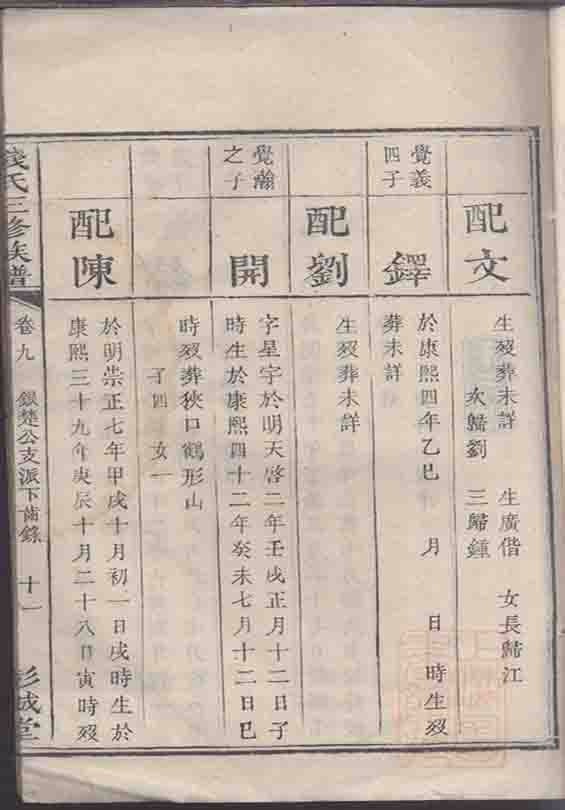 配文
生歿葬未詳 生廣偕 女長歸江
次歸劉 三歸鍾
覺義
四子
鐸
於康熙四年乙巳 月 日 時生歿
葬未詳
配劉
生歿葬未詳
覺瀚
之子
開
字星宇於明天啓二年壬戌正月十二日子
時生於康熙四十二年癸未七月十二日巳
時歿葬狹口鶴形山
子四 女一
配陳
於明崇正七年甲戌十月初一日戌時生於
康熙三十九年庚辰十月二十八日寅時歿
錢氏三修族譜
卷九 銀楚公支派下齒錄 十一 彭城堂